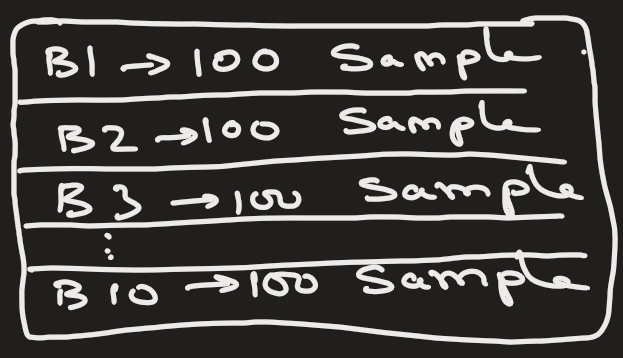 B1 → 100 Sample
B2 → 100 Sample
B3 → 100 Sample
⋮
B10 → 100 Sample